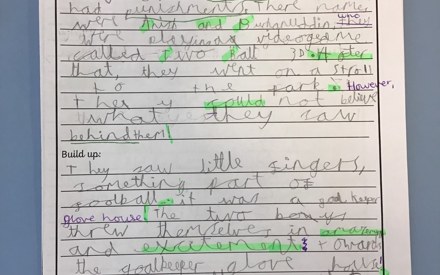 had punishments. There name
were and who
were playing a videogame
called Two Ball 3D. After
that, they went on a stroll
to the park. However,
they could not believe
what they saw
behind them!
Build up:
They saw little fingers,
something part of
football. it was a goal keeper
glove house! The two boays
threw themselves in
and excitement towards
the goalkeeper glove house!